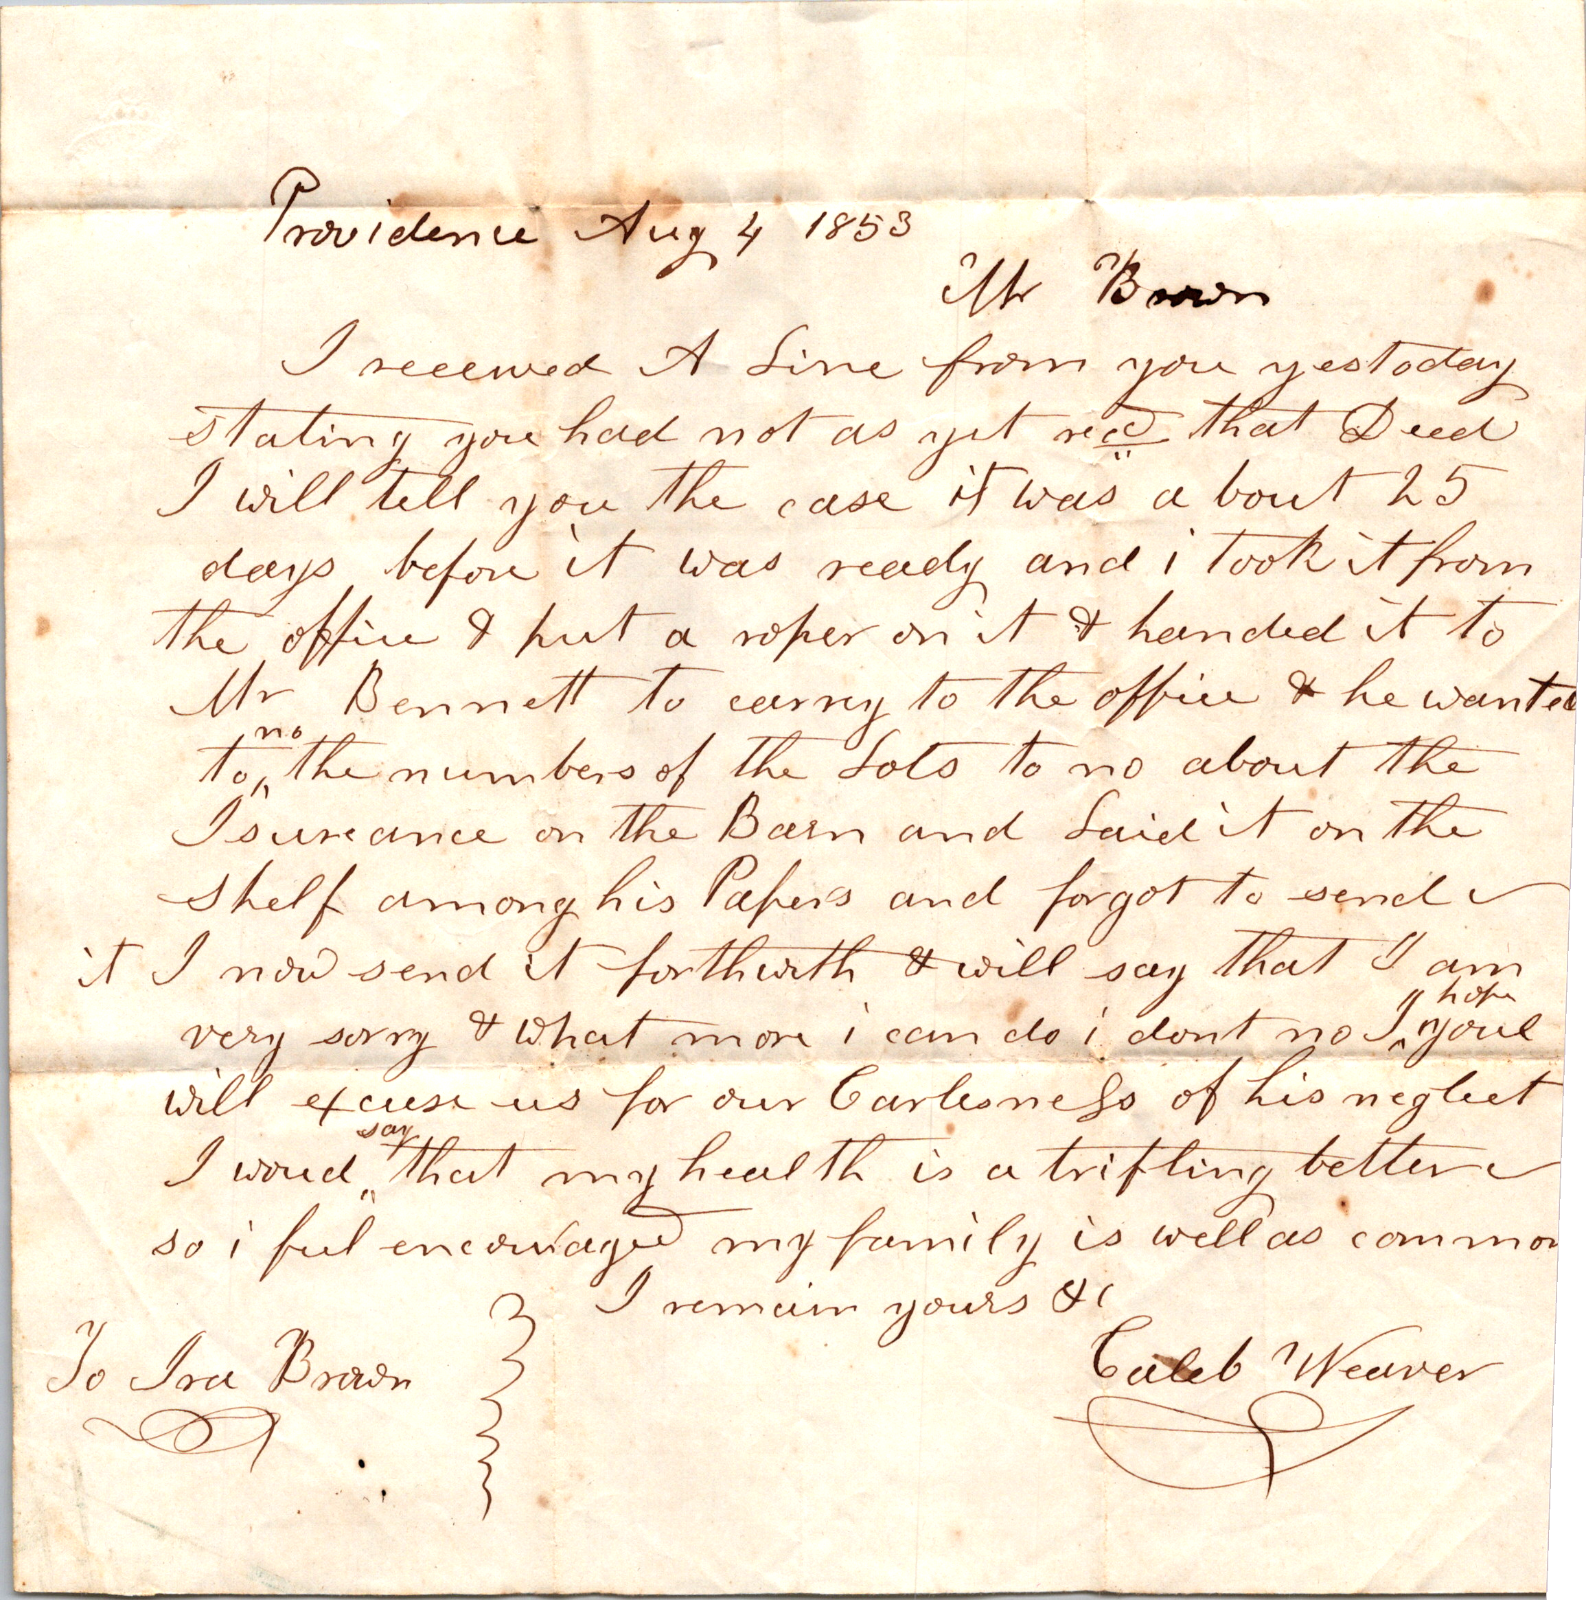 Providence Aug 4 1853
Mr Brown
I receeived A Line from you yestoday
stating you had not as yet recd that Deed
I will tell you the case it was a bout 25
days before it was ready and i took it from
the office & put a roper on it & handed it to
Mr Bennett to carrey to the office & he wanted
to no the numbers of the Lots to no about the
Isureance on the Barn and Laid it on the
shelf among his Papers and forgot to send
it I now send it forthwith & will say that I am
very sorry & what more i can do i dont no I hope youl
will excuse us for our Carlesness of his neglect
I woud say that my health is a trifling better
so i feel encouraged my family is well as common
I remain yours &c
To Ira Brown
Caleb Weaver